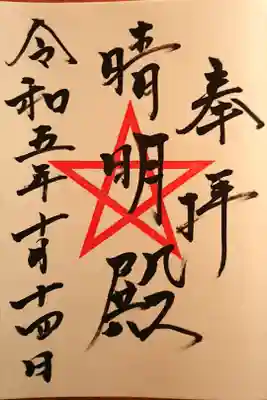 奉拝
晴明殿
令和五年十月十四日